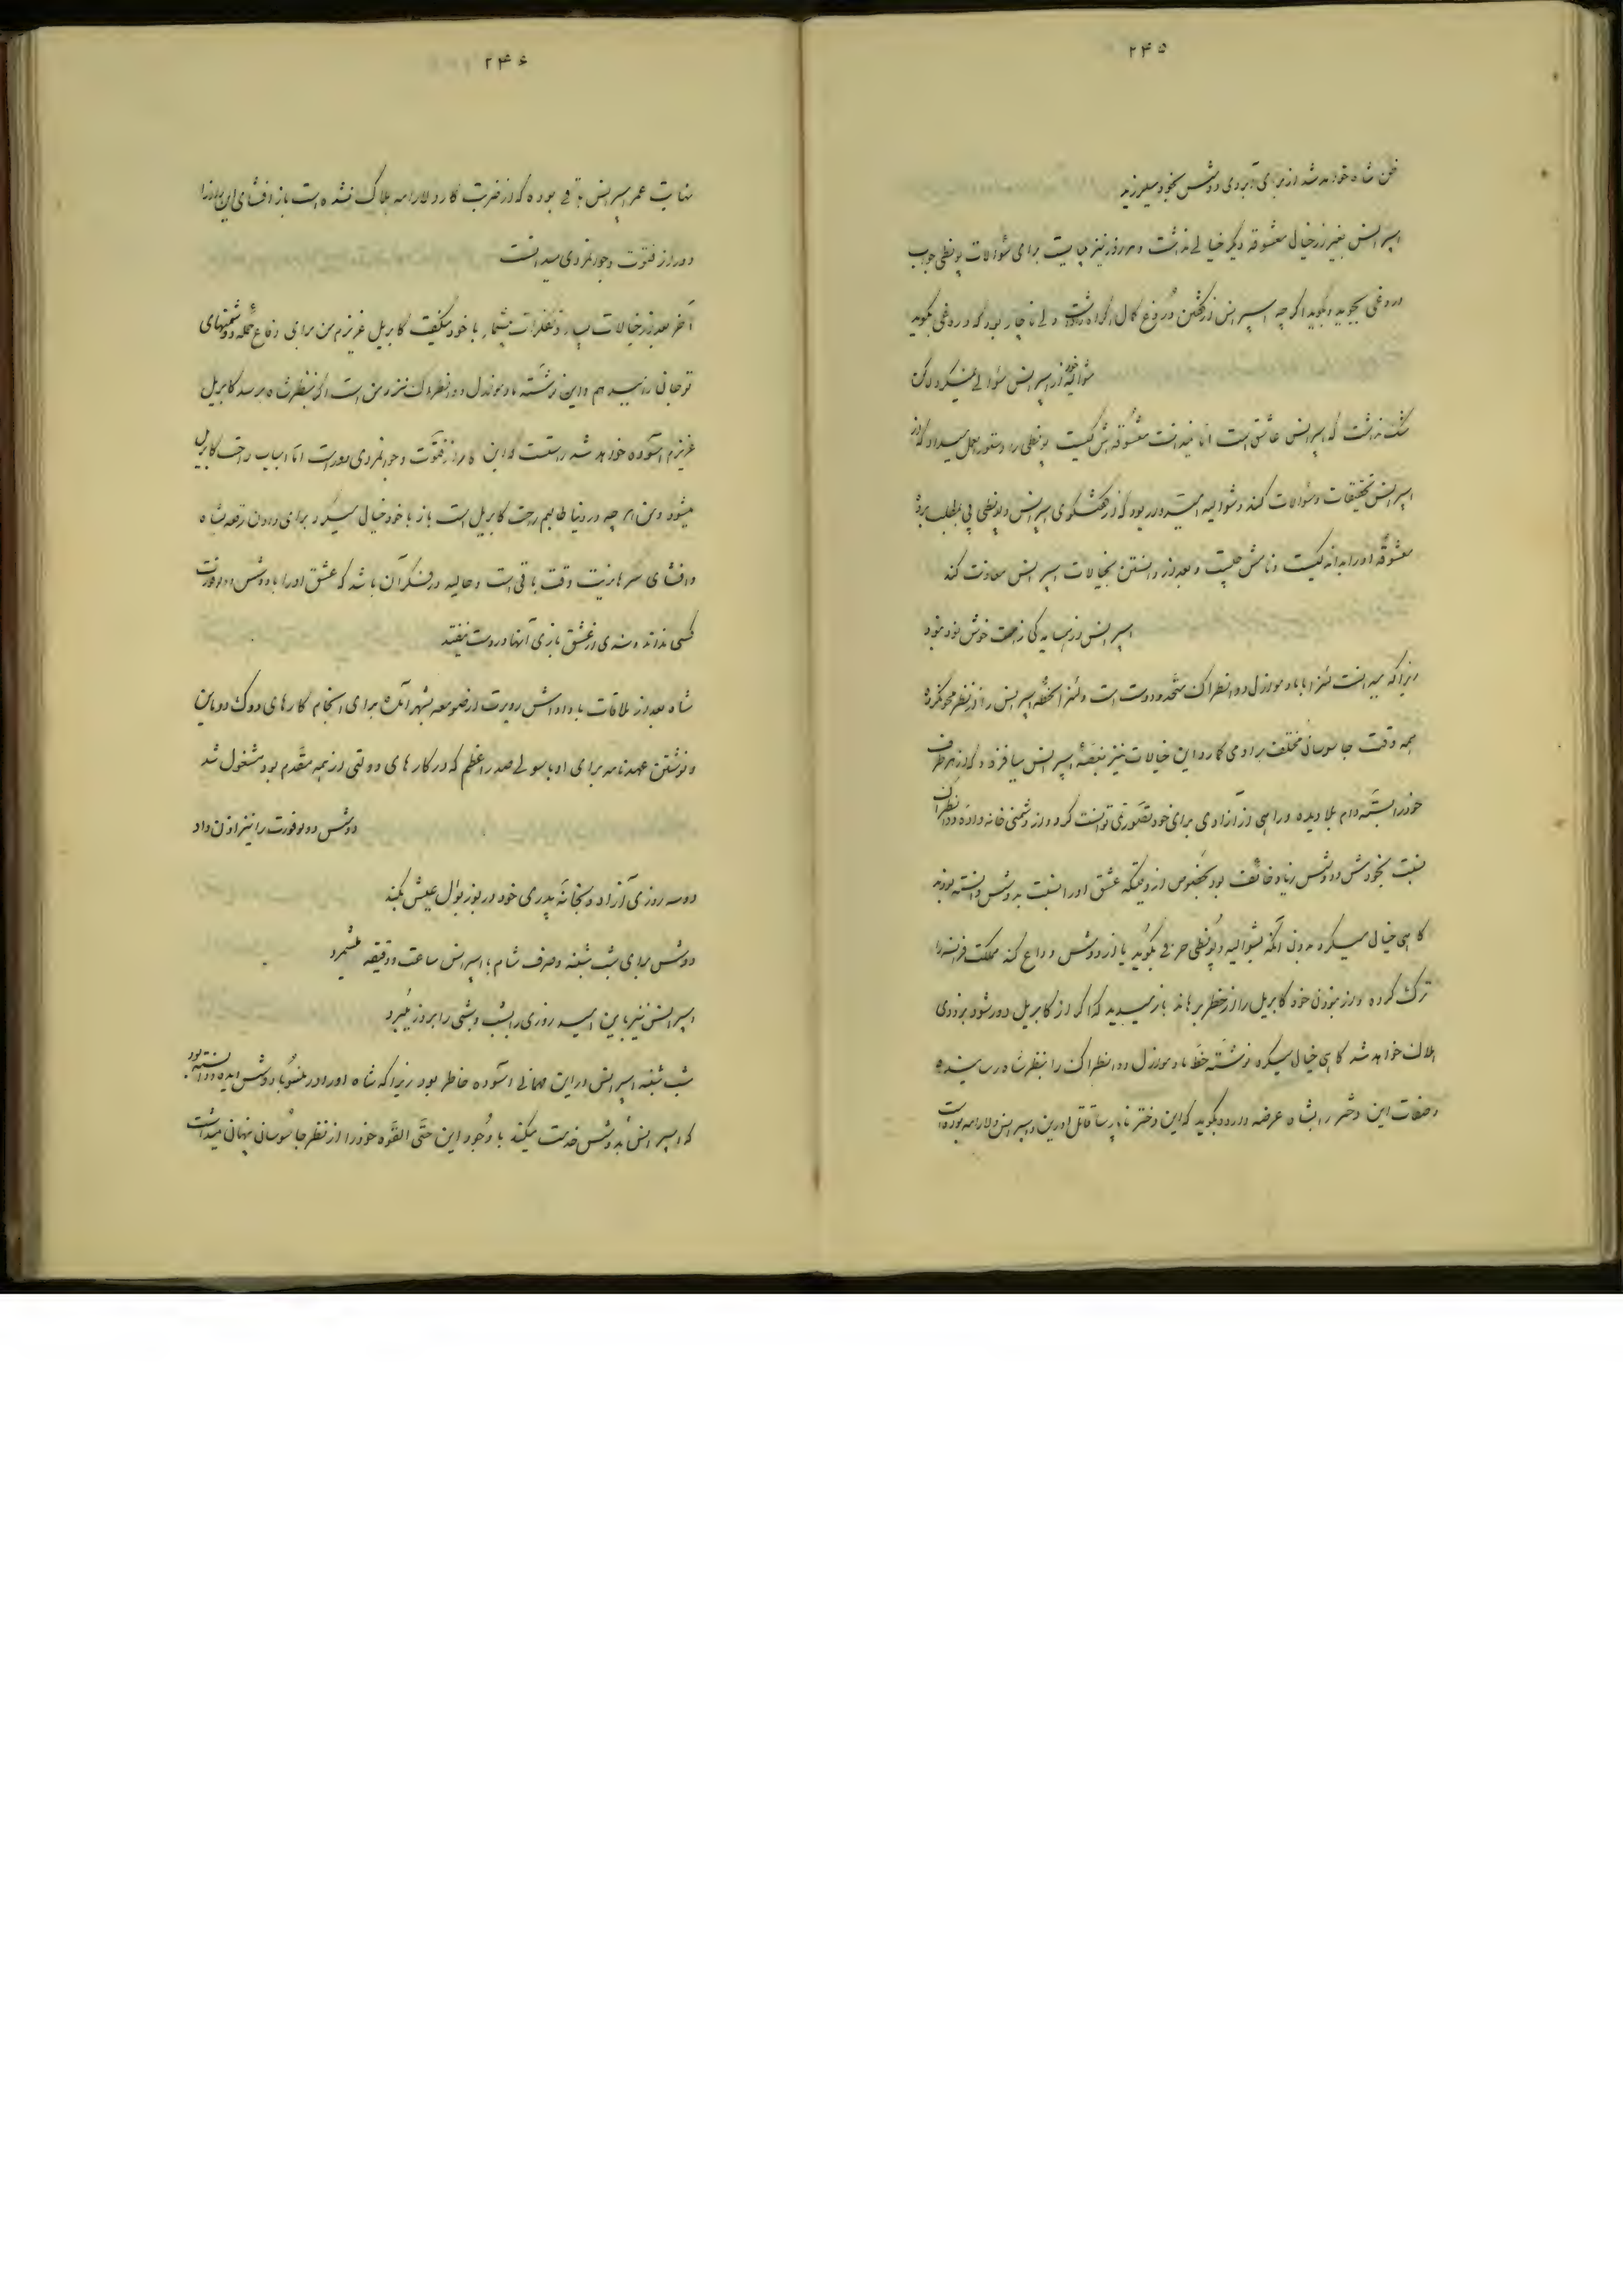 ۲۴۵
ظن شاه خواهد شد از برای آبروی دوشس بخود میلرزید
اسپرانس بغیر از خیال معشوقه دیگر خیالی نداشت و هر روز نیز میبایست برای سؤالات پونطی جواب
دروغی بجوید و بگوید اگرچه اسپرانس از گفتن دروغ کمال اکراه داشت ولی ناچار بود که دروغی بگوید
شوالیه از اسپرانس سؤالی نمیکرد لاکن
شک نداشت که اسپرانس عاشق است اما نمیدانست معشوقه‌اش کیست پونطی را دستورالعمل میداد که از
اسپرانس تحقیقات و سؤالات کند و شوالیه امیدوار بود که از گفتگوی اسپرانس و پونطی پی بمطلب برد
معشوقه او را بداند کیست و نامش چیست و بعد از دانستن بخیالات اسپرانس معاونت کند
اسپرانس از همسایه گی زحمت خوش نبود
زیرا که میدانست لئنرا با مادموازل دو انطراک متحد و دوست است و لئنرا لحظهٔ اسپرانس را از نظر محو نکرده
همه وقت جاسوسان مختلف بر او می گمارد این خیالات نیز بغصهٔ اسپرانس میافزود که از هر طرف
خود را بستهٔ دام بلا دیده و راهی از آزادی برای خود تصور نمی توانست کرد و از دشمنی خانه واده دو انطراک
نسبت بخودش و دوشس زیاد خائف بود بخصوص از وقتیکه عشق او را نسبت به دوشس دانسته بودند
گاهی خیال میکرد بدون آنکه بشوالیه و پونطی حرفی بگوید یا از دوشس وداع کند مملکت فرانسه را
ترک کرده و از نبودن خود گابریل را از خطر برهاند باز میدید که اگر از گابریل دور شود بزودی
هلاک خواهد شد گاهی خیال میکرد نوشته خط مادموازل دو انطراک را بنظر شاه رسانیده
و صفات این دختر را بشاه عرضه دارد و بگوید که این دختر ناپارسا قاتل اورین و اسپرانس و لارامه بوده است
۲۴۶
نهایت عمر اسپرانس باقی بوده که از ضربت کارد لارامه هلاک نشده است باز افشای این رازها را
دور از فتوت و جوانمردی میدانست
آخر بعد از خیالات بسیار و تفکرات بیشمار با خود میگفت گابریل عزیزم من برای دفاع حمله دشمنهای
تو حاضر هستم و این نوشته مادموازل دو انطراک نزد من است اگر بنظر شاه برسد گابریل
عزیزم آسوده خواهد شد راستست که این کار از فتوت و جوانمردی دور است اما اسباب راحت گابریل
میشود و من هر چه در دنیا طالبم راحت گابریل است باز با خود خیال میکرد برای دادن رقعه بشاه
و افشای سر هانریت وقت باقی است و حالیه در فکر آن باشد که عشق او را با دوشس دوبوفورت
کسی نداند و سندی از عشق بازی آنها در دست نیفتد
شاه بعد از ملاقات با دوادوش روبرت از صومعه بشهر آمد برای انجام کارهای دوک دو ماین
و نوشتن عهدنامه برای او با سولی صدر اعظم که در کارهای دولتی از همه مقدم بود مشغول شد
دوشس دوبوفورت را نیز اذن داد
دو سه روزی آزاد و بخانه پدری خود در بوژیوال عیش بکند
دوشس برای شب شنبه و صرف شام با اسپرانس ساعت و دقیقه میشمرد
اسپرانس نیز باین امید روزی را بشب و شبی را بروز میبرد
شب شنبه اسپرانس از این مهمانی آسوده خاطر بود زیرا که شاه او را در منسو با دوشس دیده و دانسته بود
که اسپرانس به دوشس خدمت میکند با وجود این حتی القوه خود را از نظر جاسوسان پنهان میداشت